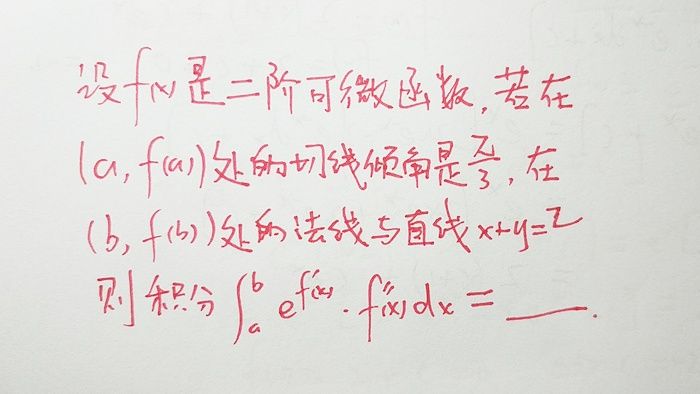 设f(x)是二阶可微函数,若在
(a,f(a))处的切线倾角是π/3,在
(b,f(b))处的法线与直线x+y=2
则积分∫_a^b e^{f'(x)}·f''(x)dx=____.